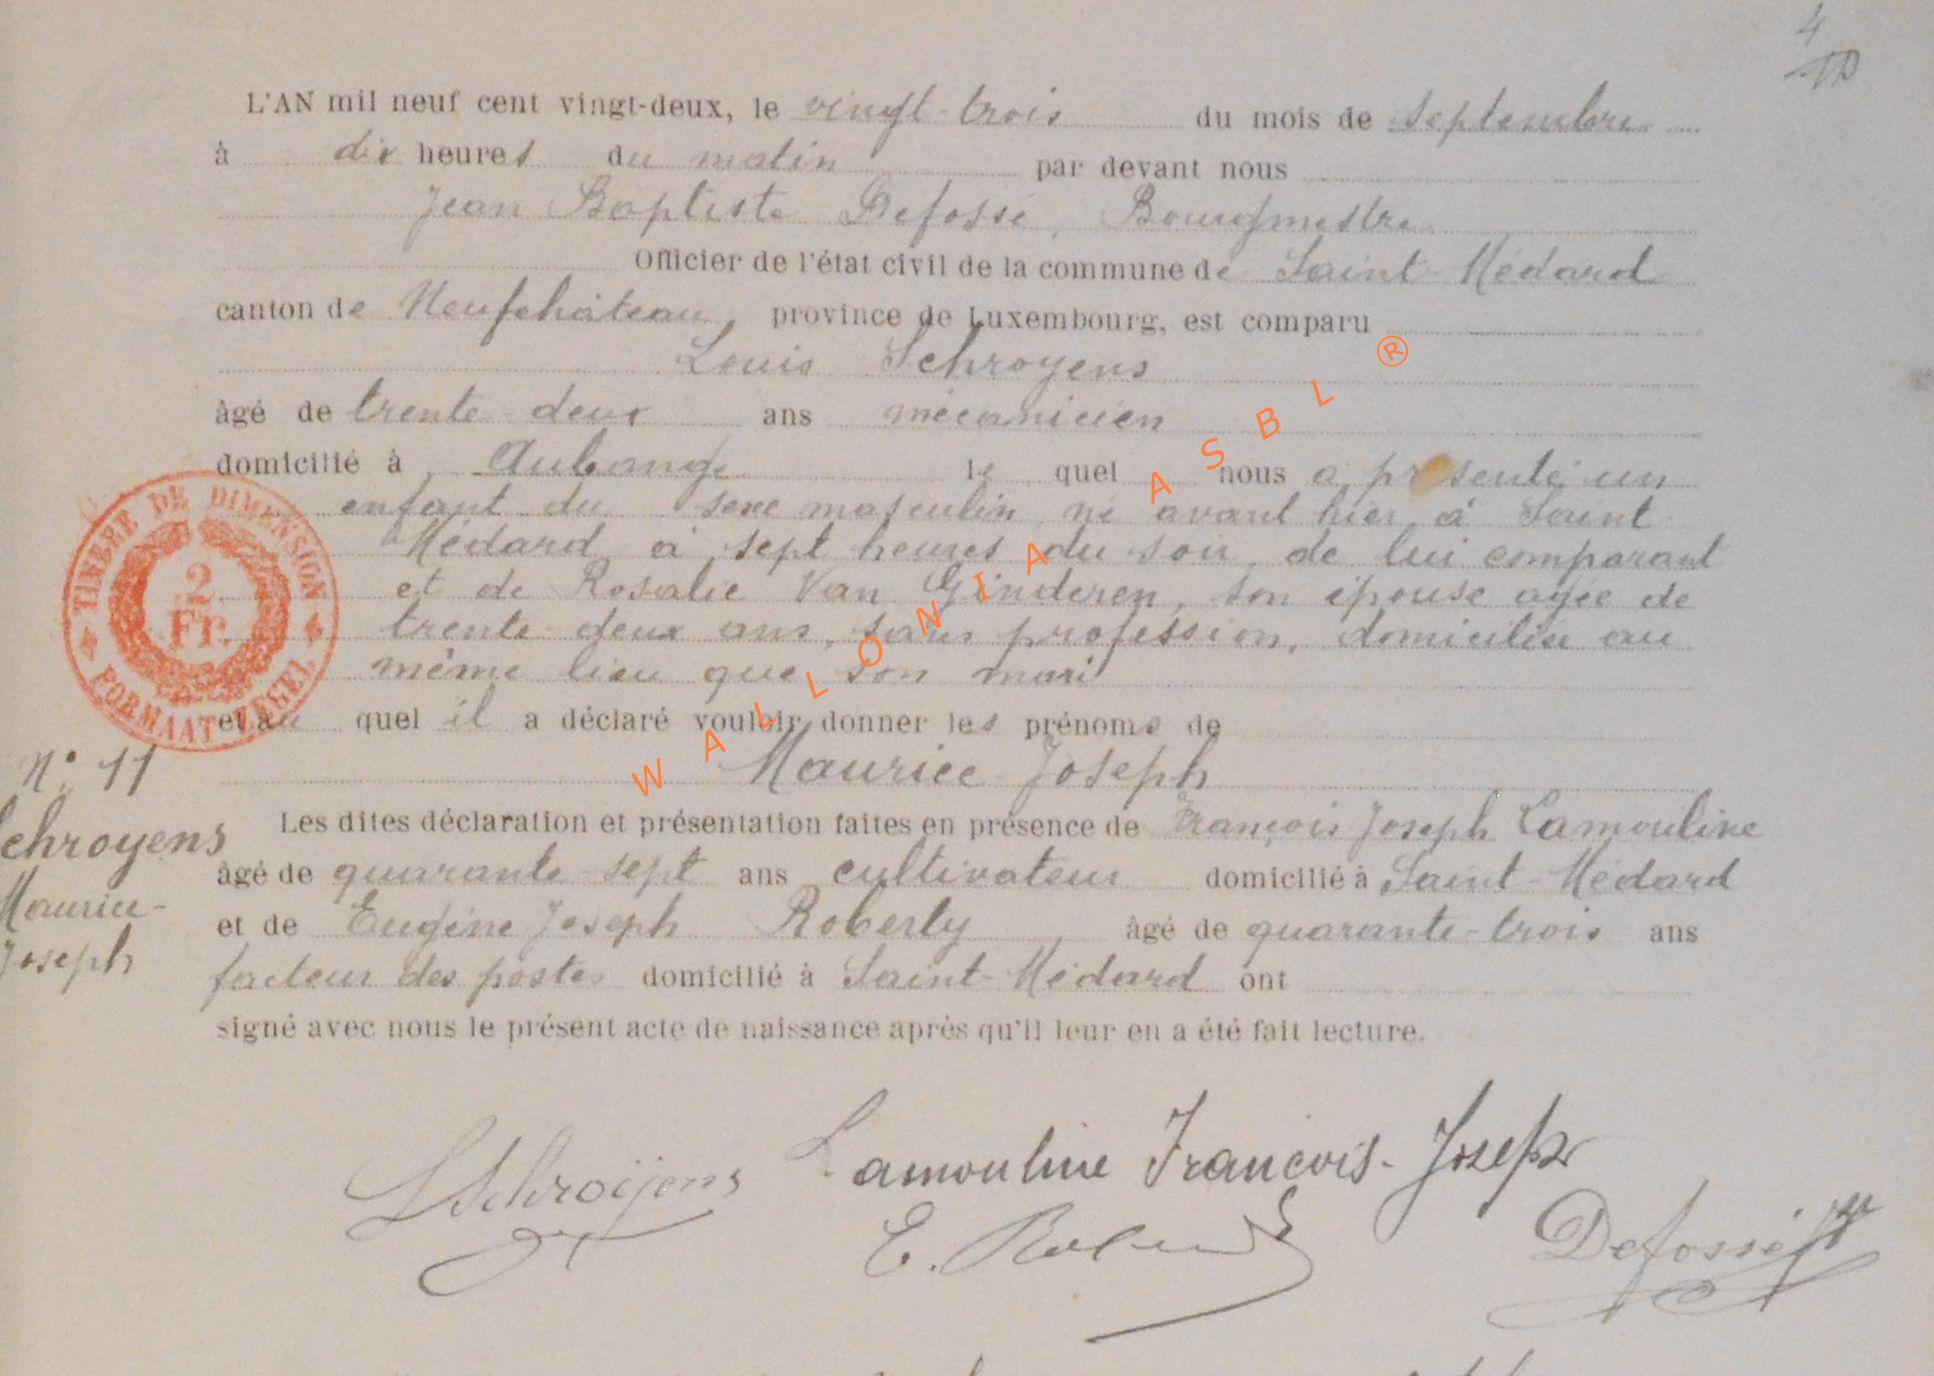 4
L'AN mil neuf cent vingt-deux, le vingt-trois du mois de Septembre
à dix heures du matin par devant nous
Jean Baptiste Defossé, Bourgmestre
Officier de l'état civil de la commune de Saint-Médard
canton de Neufchâteau, province de Luxembourg, est comparu
Louis Schroyens
âgé de trente-deux ans mécanicien
domicilié à Aubange le quel nous a présenté un
enfant du sexe masculin, né avant hier, à Saint
Médard, à sept heures du soir, de lui comparant
et de Rosalie Van Ginderen, son épouse agée de
trente-deux ans, sans profession, domiciliée au
même lieu que son mari
et au quel il a déclaré vouloir donner les prénoms de
Maurice Joseph
Les dites déclaration et présentation faites en présence de François Joseph Lamouline
âgé de quarante-sept ans cultivateur domicilié à Saint-Médard
et de Eugène Joseph Roberty âgé de quarante-trois ans
facteur des postes domicilié à Saint-Médard ont
signé avec nous le présent acte de naissance après qu'il leur en a été fait lecture.
TIMBRE DE DIMENSION
2
Fr.
FORMAAT ZEGEL
N° 11
Schroyens
Maurice-
Joseph
LSchroijens Lamouline François-Joseph
E. Defossé
WALLONIA ASBL ®